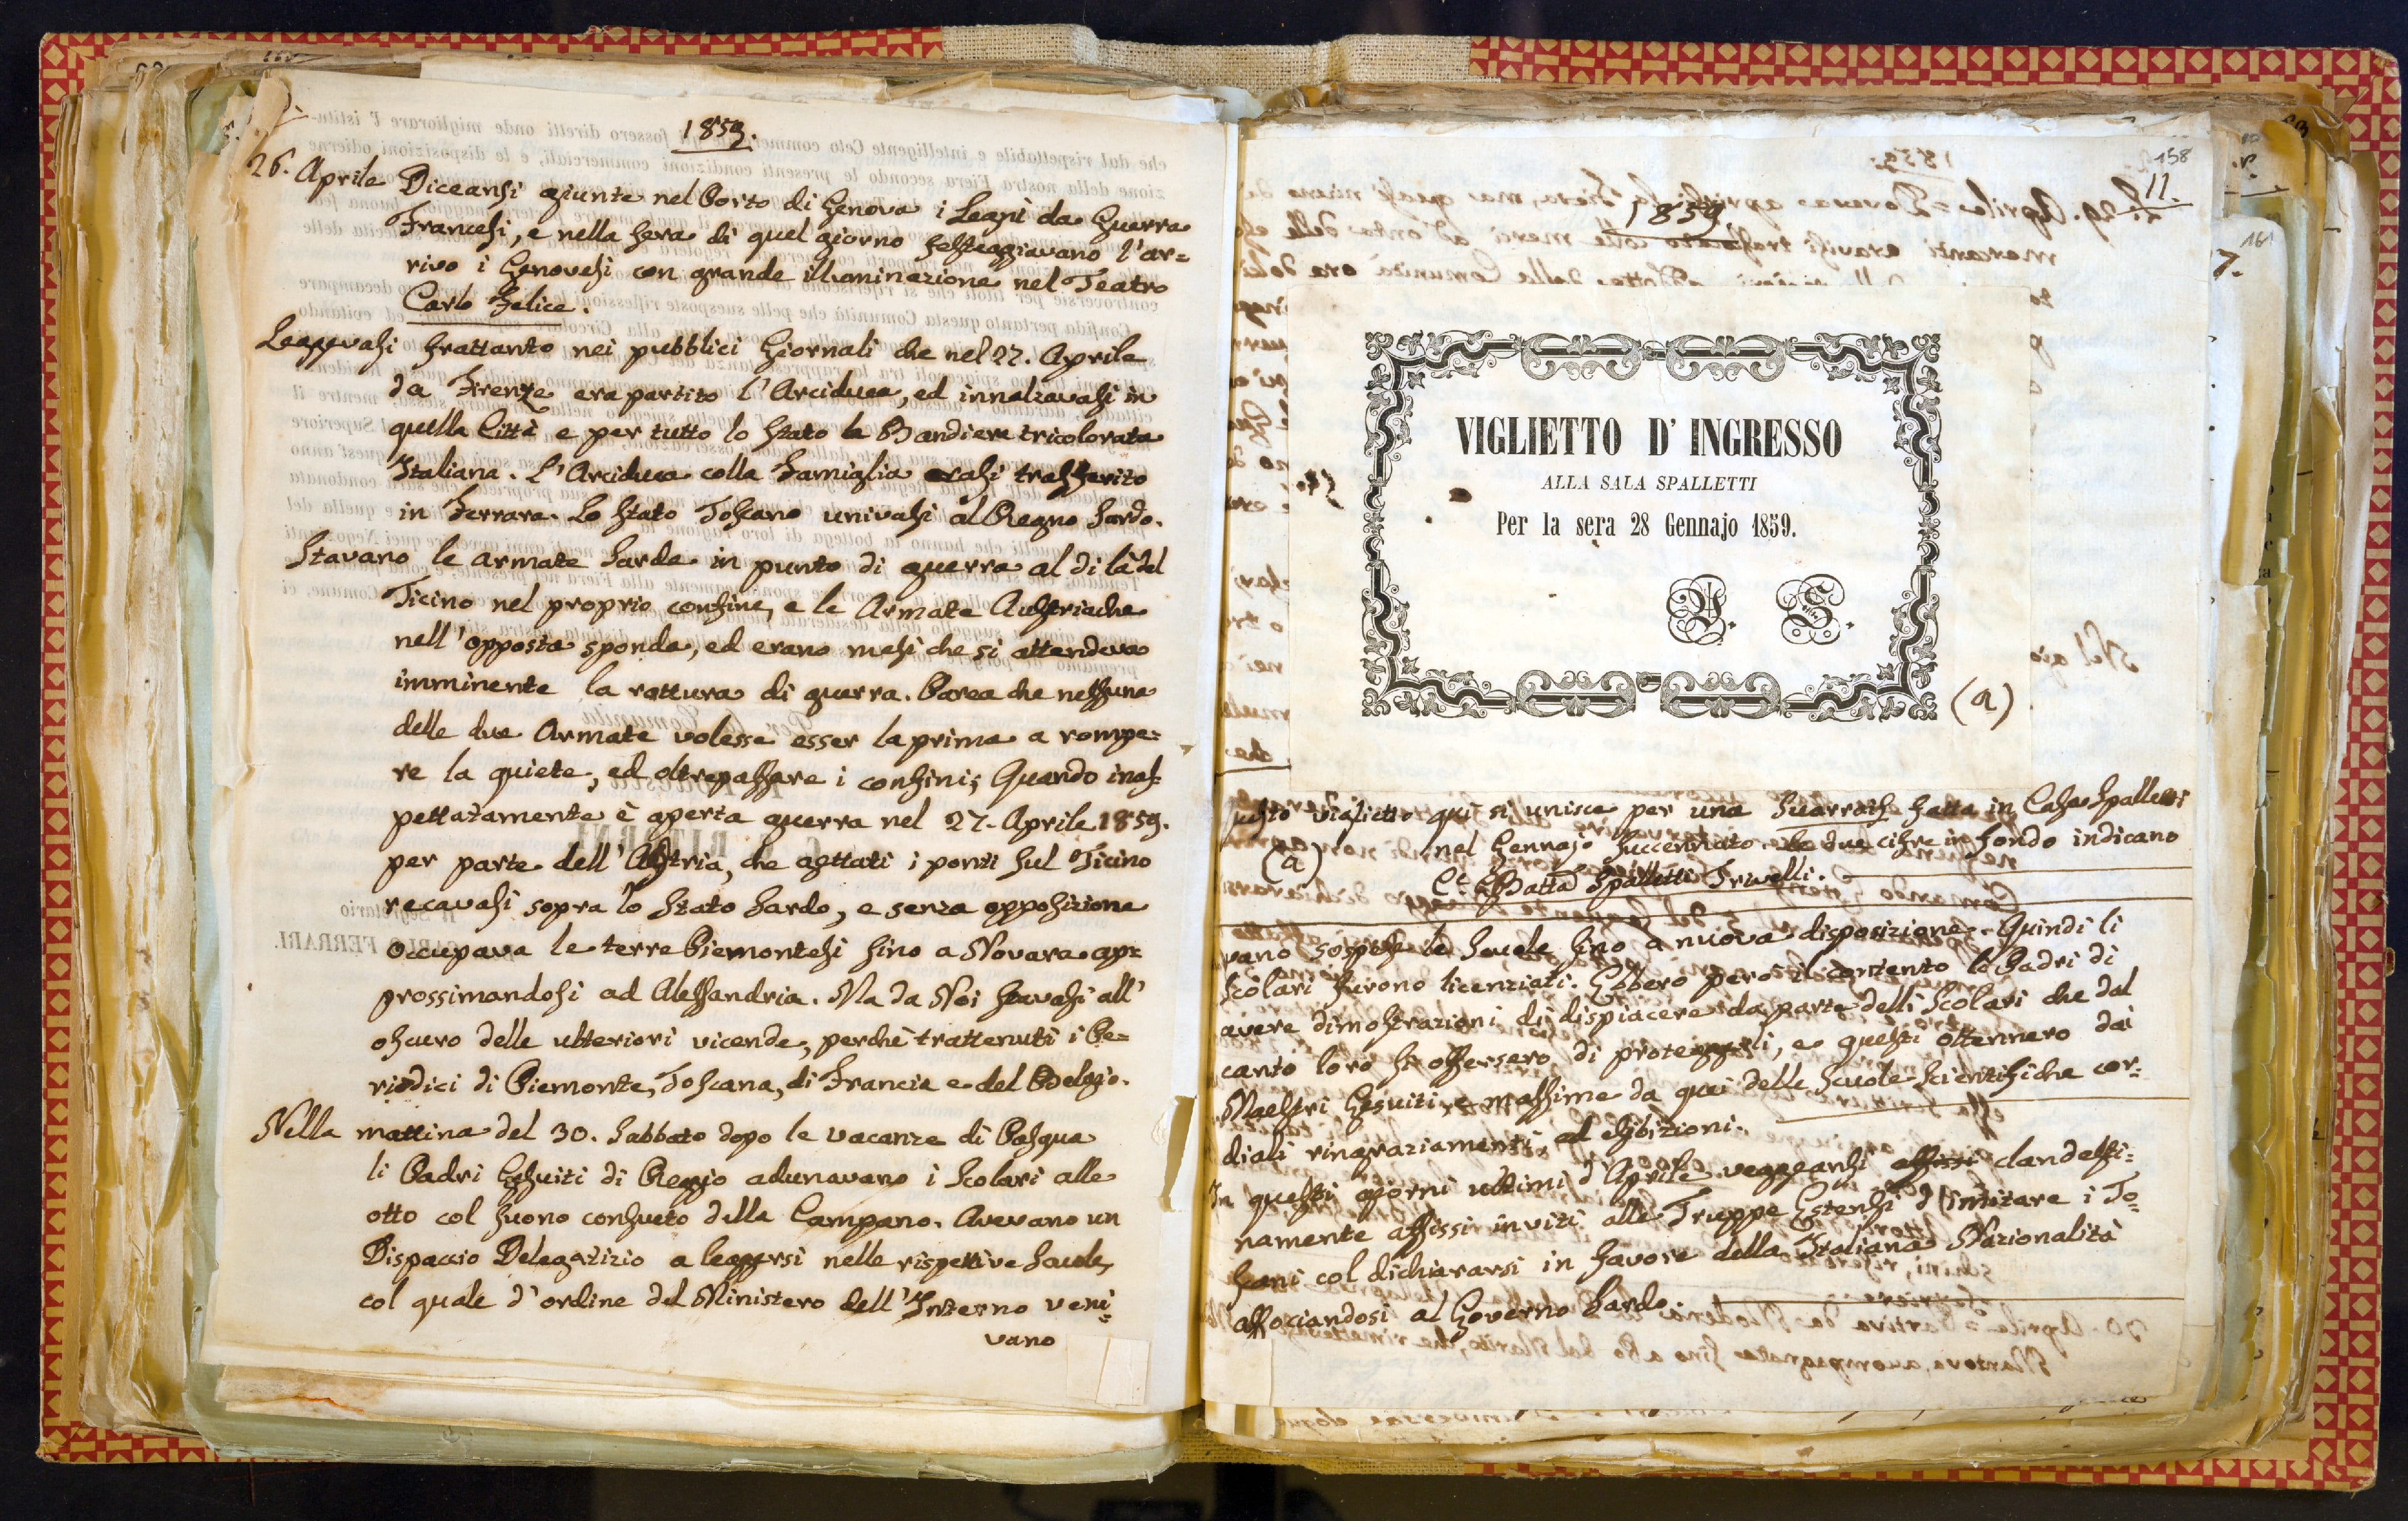 1859.
26. Aprile Diceansi giunte nel Porto di Genova i Legni da Guerra
Francesi, e nella sera di quel giorno festeggiavano l'ar=
rivo i Genovesi con grande illuminazione nel Teatro
Carlo Felice.
Leggevasi frattanto nei pubblici Giornali che nel 27. Aprile
da Firenze era partito l'Arciduca, ed innalzavasi in
quella Città e per tutto lo Stato la Bandiera tricolorata
Italiana. L'Arciduca colla Famiglia erasi trasferito
in Ferrara. Lo Stato Toscano univasi al Regno Sardo.
Stavano le armate Sarde in punto di guerra al di là del
Ticino nel proprio confine, e le Armate Austriache
nell'opposta sponda, ed erano mesi che si attendeva
imminente la rottura di guerra. Parea che nessuna
delle due Armate volesse esser la prima a rompe=
re la quiete, ed oltrepassare i confini; Quando inas=
pettatamente è aperta guerra nel 27. Aprile 1859.
per parte dell'Austria, che gettati i ponti sul Ticino
recavasi sopra lo Stato Sardo, e senza opposizione
occupava le terre Piemontesi fino a Novara ap=
prossimandosi ad Alessandria. Ma da Noi stavasi all'
oscuro delle ulteriori vicende, perchè trattenuti i Pe=
riodici di Piemonte, Toscana, di Francia e del Belgio.
Nella mattina del 30. Sabbato dopo le vacanze di Pasqua
li Padri Gesuiti di Reggio adunavano i Scolari alle
otto col suono consueto della Campana. Avevano un
Dispaccio Delegatizio a leggersi nelle rispettive Scuole,
col quale d'ordine del Ministero dell'Interno veni=
vano
158
11.
1859
161
7.
VIGLIETTO D' INGRESSO
ALLA SALA SPALLETTI
Per la sera 28 Gennajo 1859.
(a)
viglietto qui si unisce per una fatta in Casa Spalletti
(a) nel Gennajo succennato. Le due cifre in fondo indicano
Batta Spalletti Trivelli.
vano sospese le Scuole fino a nuova disposizione. Quindi li
Scolari furono licenziati. Ebbero però il contento li Padri di
avere dimostrazioni di dispiacere da parte delli Scolari che dal
canto loro si offersero di proteggerli, e questi ottennero dai
Maestri Gesuiti, e massime da quei delle Scuole Scientifiche cor=
diali ringraziamenti ed esibizioni.
In questi giorni ultimi d'Aprile veggeansi clandesti=
namente affissi inviti alle Truppe Estensi d'imitare i To=
scani col dichiararsi in favore della Italiana Nazionalità
associandosi al Governo Sardo.